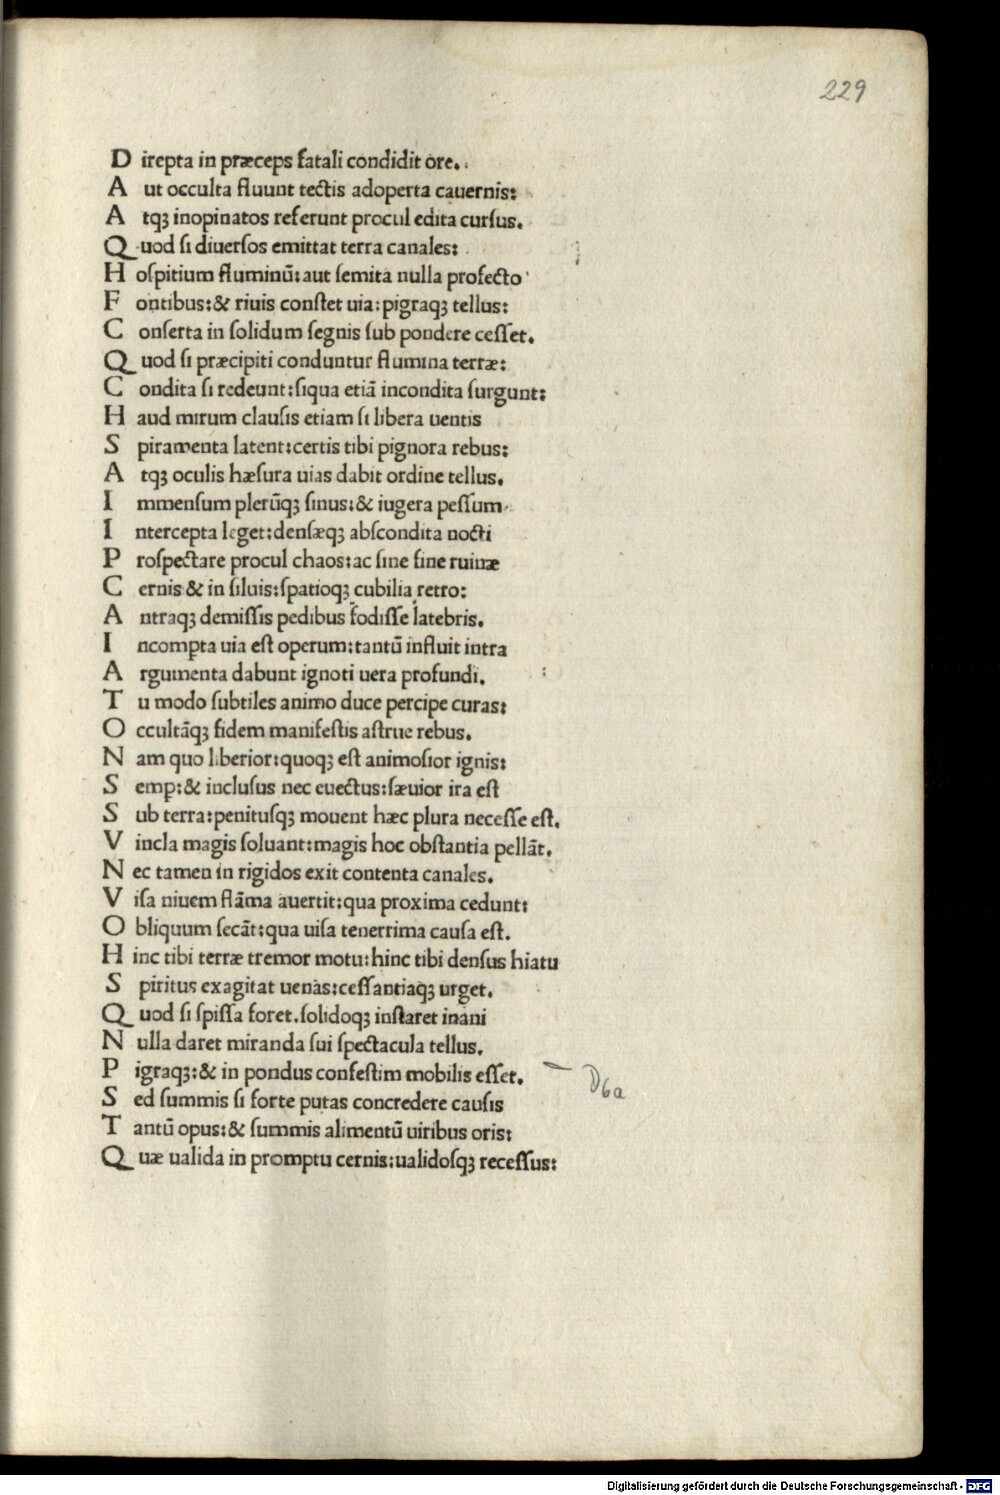 229
Direpta in præceps fatali condidit ore.
Aut occulta fluunt tectis adoperta cauernis:
Atqꝫ inopinatos referunt procul edita curſus.
Quod ſi diuerſos emittat terra canales:
Hoſpitium fluminū: aut ſemita nulla profecto
Fontibus: & riuis conſtet uia: pigraqꝫ tellus:
Conſerta in ſolidum ſegnis ſub pondere ceſſet.
Quod ſi præcipiti conduntur flumina terræ:
Condita ſi redeunt: ſiqua etiā incondita ſurgunt:
Haud mirum clauſis etiam ſi libera uentis
Spiramenta latent: certis tibi pignora rebus:
Atqꝫ oculis hæſura uias dabit ordine tellus.
Immenſum plerūqꝫ ſinus: & iugera peſſum
Intercepta leget: denſæqꝫ abſcondita nocti
Proſpectare procul chaos: ac ſine fine ruinæ
Cernis & in ſiluis: ſpatioqꝫ cubilia retro:
Antraqꝫ demiſſis pedibus fodiſſe latebris.
Incompta uia eſt operum: tantū influit intra
Argumenta dabunt ignoti uera profundi.
Tu modo ſubtiles animo duce percipe curas:
Occultāqꝫ fidem manifeſtis aſtrue rebus.
Nam quo liberior: quoqꝫ eſt animoſior ignis:
Semp: & incluſus nec euectus: ſæuior ira eſt
Sub terra: penituſqꝫ mouent hæc plura neceſſe eſt.
Vincla magis ſoluant: magis hoc obſtantia pellāt.
Nec tamen in rigidos exit contenta canales.
Viſa niuem flāma auertit: qua proxima cedunt:
Obliquum ſecāt: qua uiſa tenerrima cauſa eſt.
Hinc tibi terræ tremor motu: hinc tibi denſus hiatu
Spiritus exagitat uenas: ceſſantiaqꝫ urget.
Quod ſi ſpiſſa foret. ſolidoqꝫ inſtaret inani
Nulla daret miranda ſui ſpectacula tellus.
Pigraqꝫ: & in pondus confeſtim mobilis eſſet.
D6a
Sed ſummis ſi forte putas concredere cauſis
Tantū opus: & ſummis alimentū uiribus oris:
Quæ ualida in promptu cernis: ualidoſqꝫ receſſus:
Digitalisierung gefördert durch die Deutsche Forschungsgemeinschaft - DFG